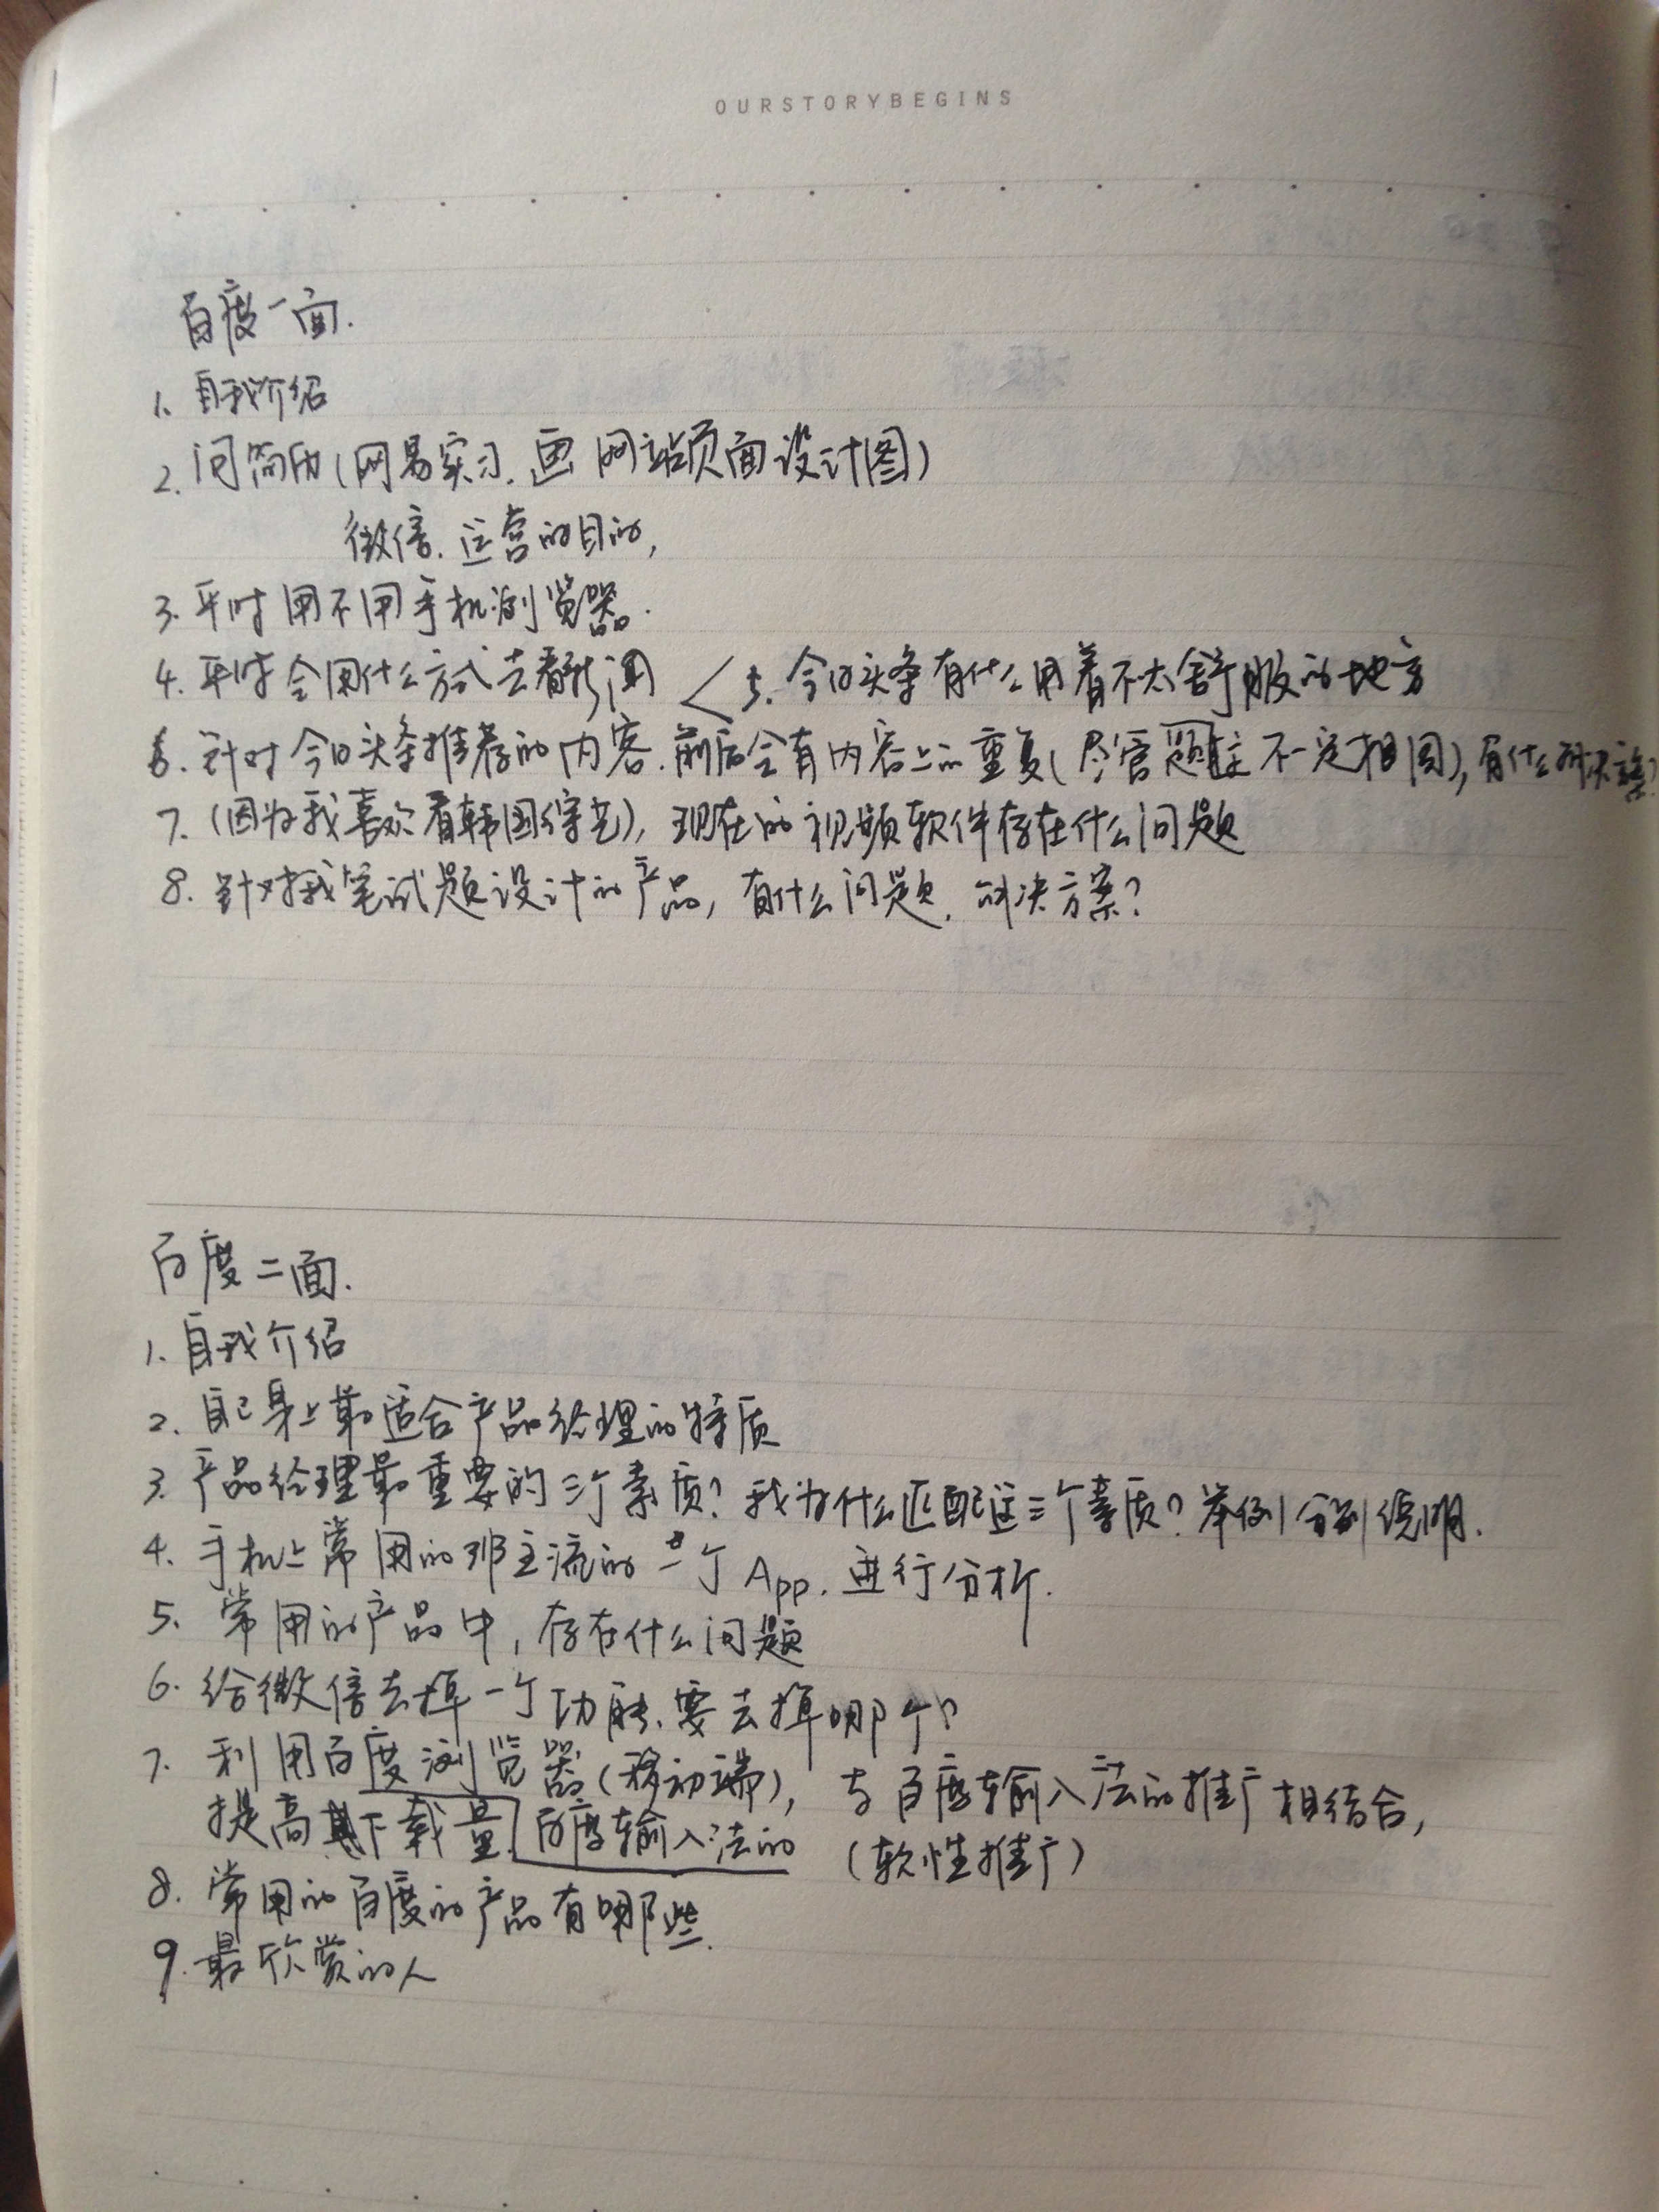 OURSTORYBEGINS
百度一面.
1. 自我介绍
2. 问简历(网易实习、画网站页面设计图)
微信、运营的目的,
3. 平时用不用手机浏览器.
4. 平时会用什么方式去看新闻 < 5. 今日头条有什么用着不太舒服的地方
6. 针对今日头条推荐的内容、前后会有内容上的重复(尽管题 不一定相同), 有什么解决方案?
7. (因为我喜欢看韩国综艺), 现在的视频软件存在什么问题
8. 针对我笔试题设计的产品, 有什么问题, 解决方案?
百度二面.
1. 自我介绍
2. 自己身上最适合产品经理的特质
3. 产品经理最重要的三个素质? 我为什么匹配这三个素质? 举例分别说明.
4. 手机上常用的非主流的 个App. 进行分析.
5. 常用的产品中, 存在什么问题
6. 给微信去掉一个功能、要去掉哪个?
7. 利用百度浏览器(移动端), 与百度输入法的推广相结合,
提高 下载量 百度输入法的 (软性推广)
8. 常用的百度的产品有哪些.
9. 最欣赏的人